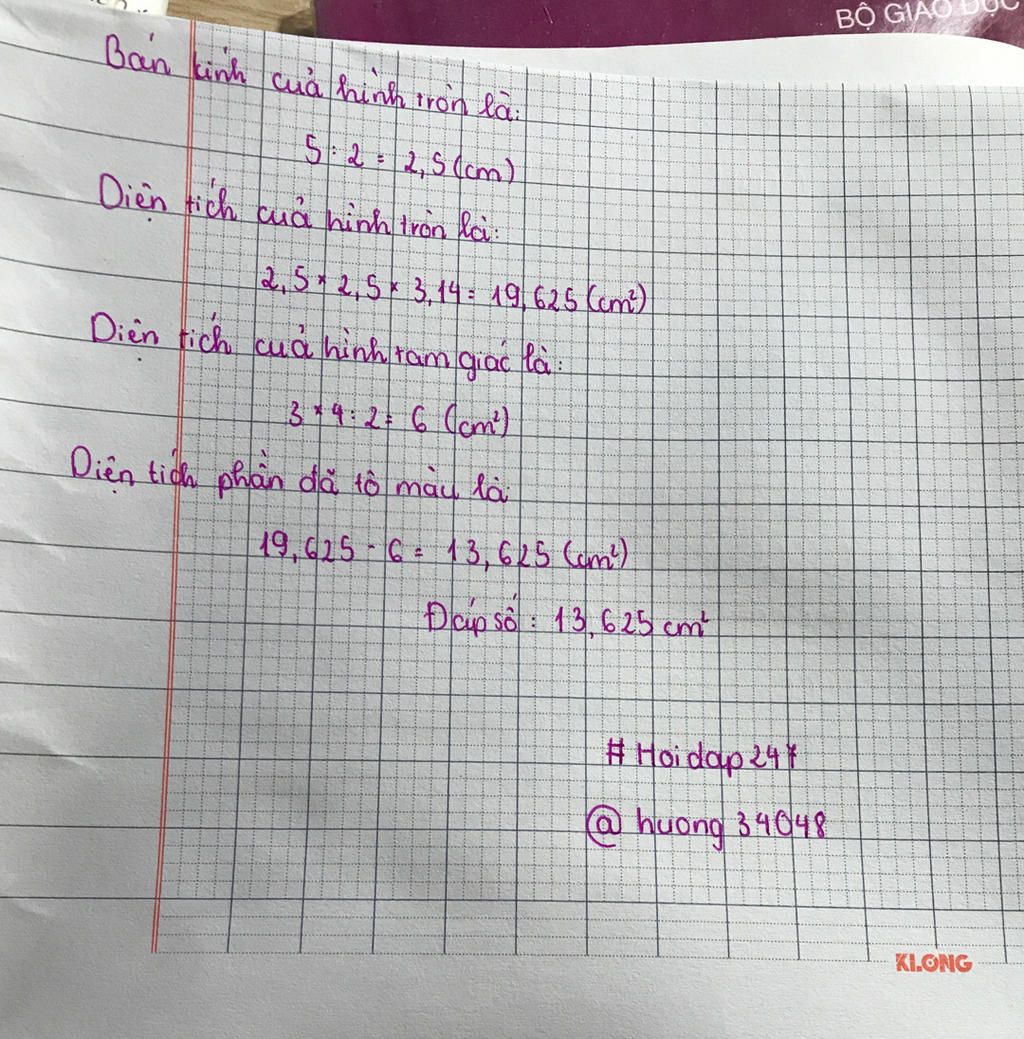 BỘ GIÁO DỤC
Bán kính của hình tròn là:
5 : 2 = 2,5 (cm)
Diện tích của hình tròn là:
2,5 × 2,5 × 3,14 = 19,625 (cm²)
Diện tích của hình tam giác là:
3 × 4 : 2 = 6 (cm²)
Diện tích phần đã tô màu là:
19,625 - 6 = 13,625 (cm²)
Đáp số : 13,625 cm²
# Hoidap247
@ huong 34048
KLONG